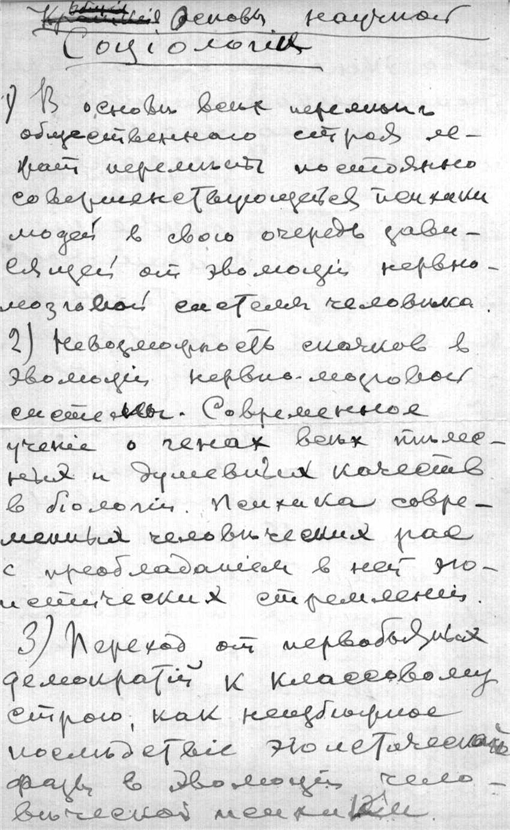 Общія основы научной
Соціологіи
1) В основѣ всех перемѣнъ
общественнаго строя ле-
жат перемѣны постоянно
совершенствующейся психики
людей в свою очередь зави-
сящей от эволюціи нервно-
мозговой системы человѣка.
2) Невозможность скачков в
эволюціи нервно-мозговой
системы. Современное
ученіе о генах всѣх тѣлес-
ных и душевных качеств
в біологіи. Психика совре-
менных человѣческих рас
с преобладаніем в ней эго-
истических стремленій.
3) Переход от первобытных
демократій к классовому
строю, как неизбѣжное
послѣдствіе эгоистической
фазы в эволюціи чело-
вѣческой психики.